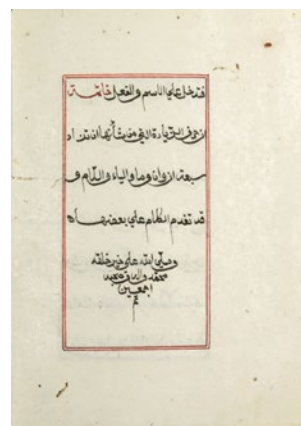 فتدخل علي الاسم والفعل خاتمة
ان حروف الزيادة التي من شأنها ان تزاد
سبعة ان وان وما والياء واللام و
قد تقدم الكلام علي بعضها ه
وصلى الله على خير خلقه
محمد وآله وصحبه
اجمعين
تم